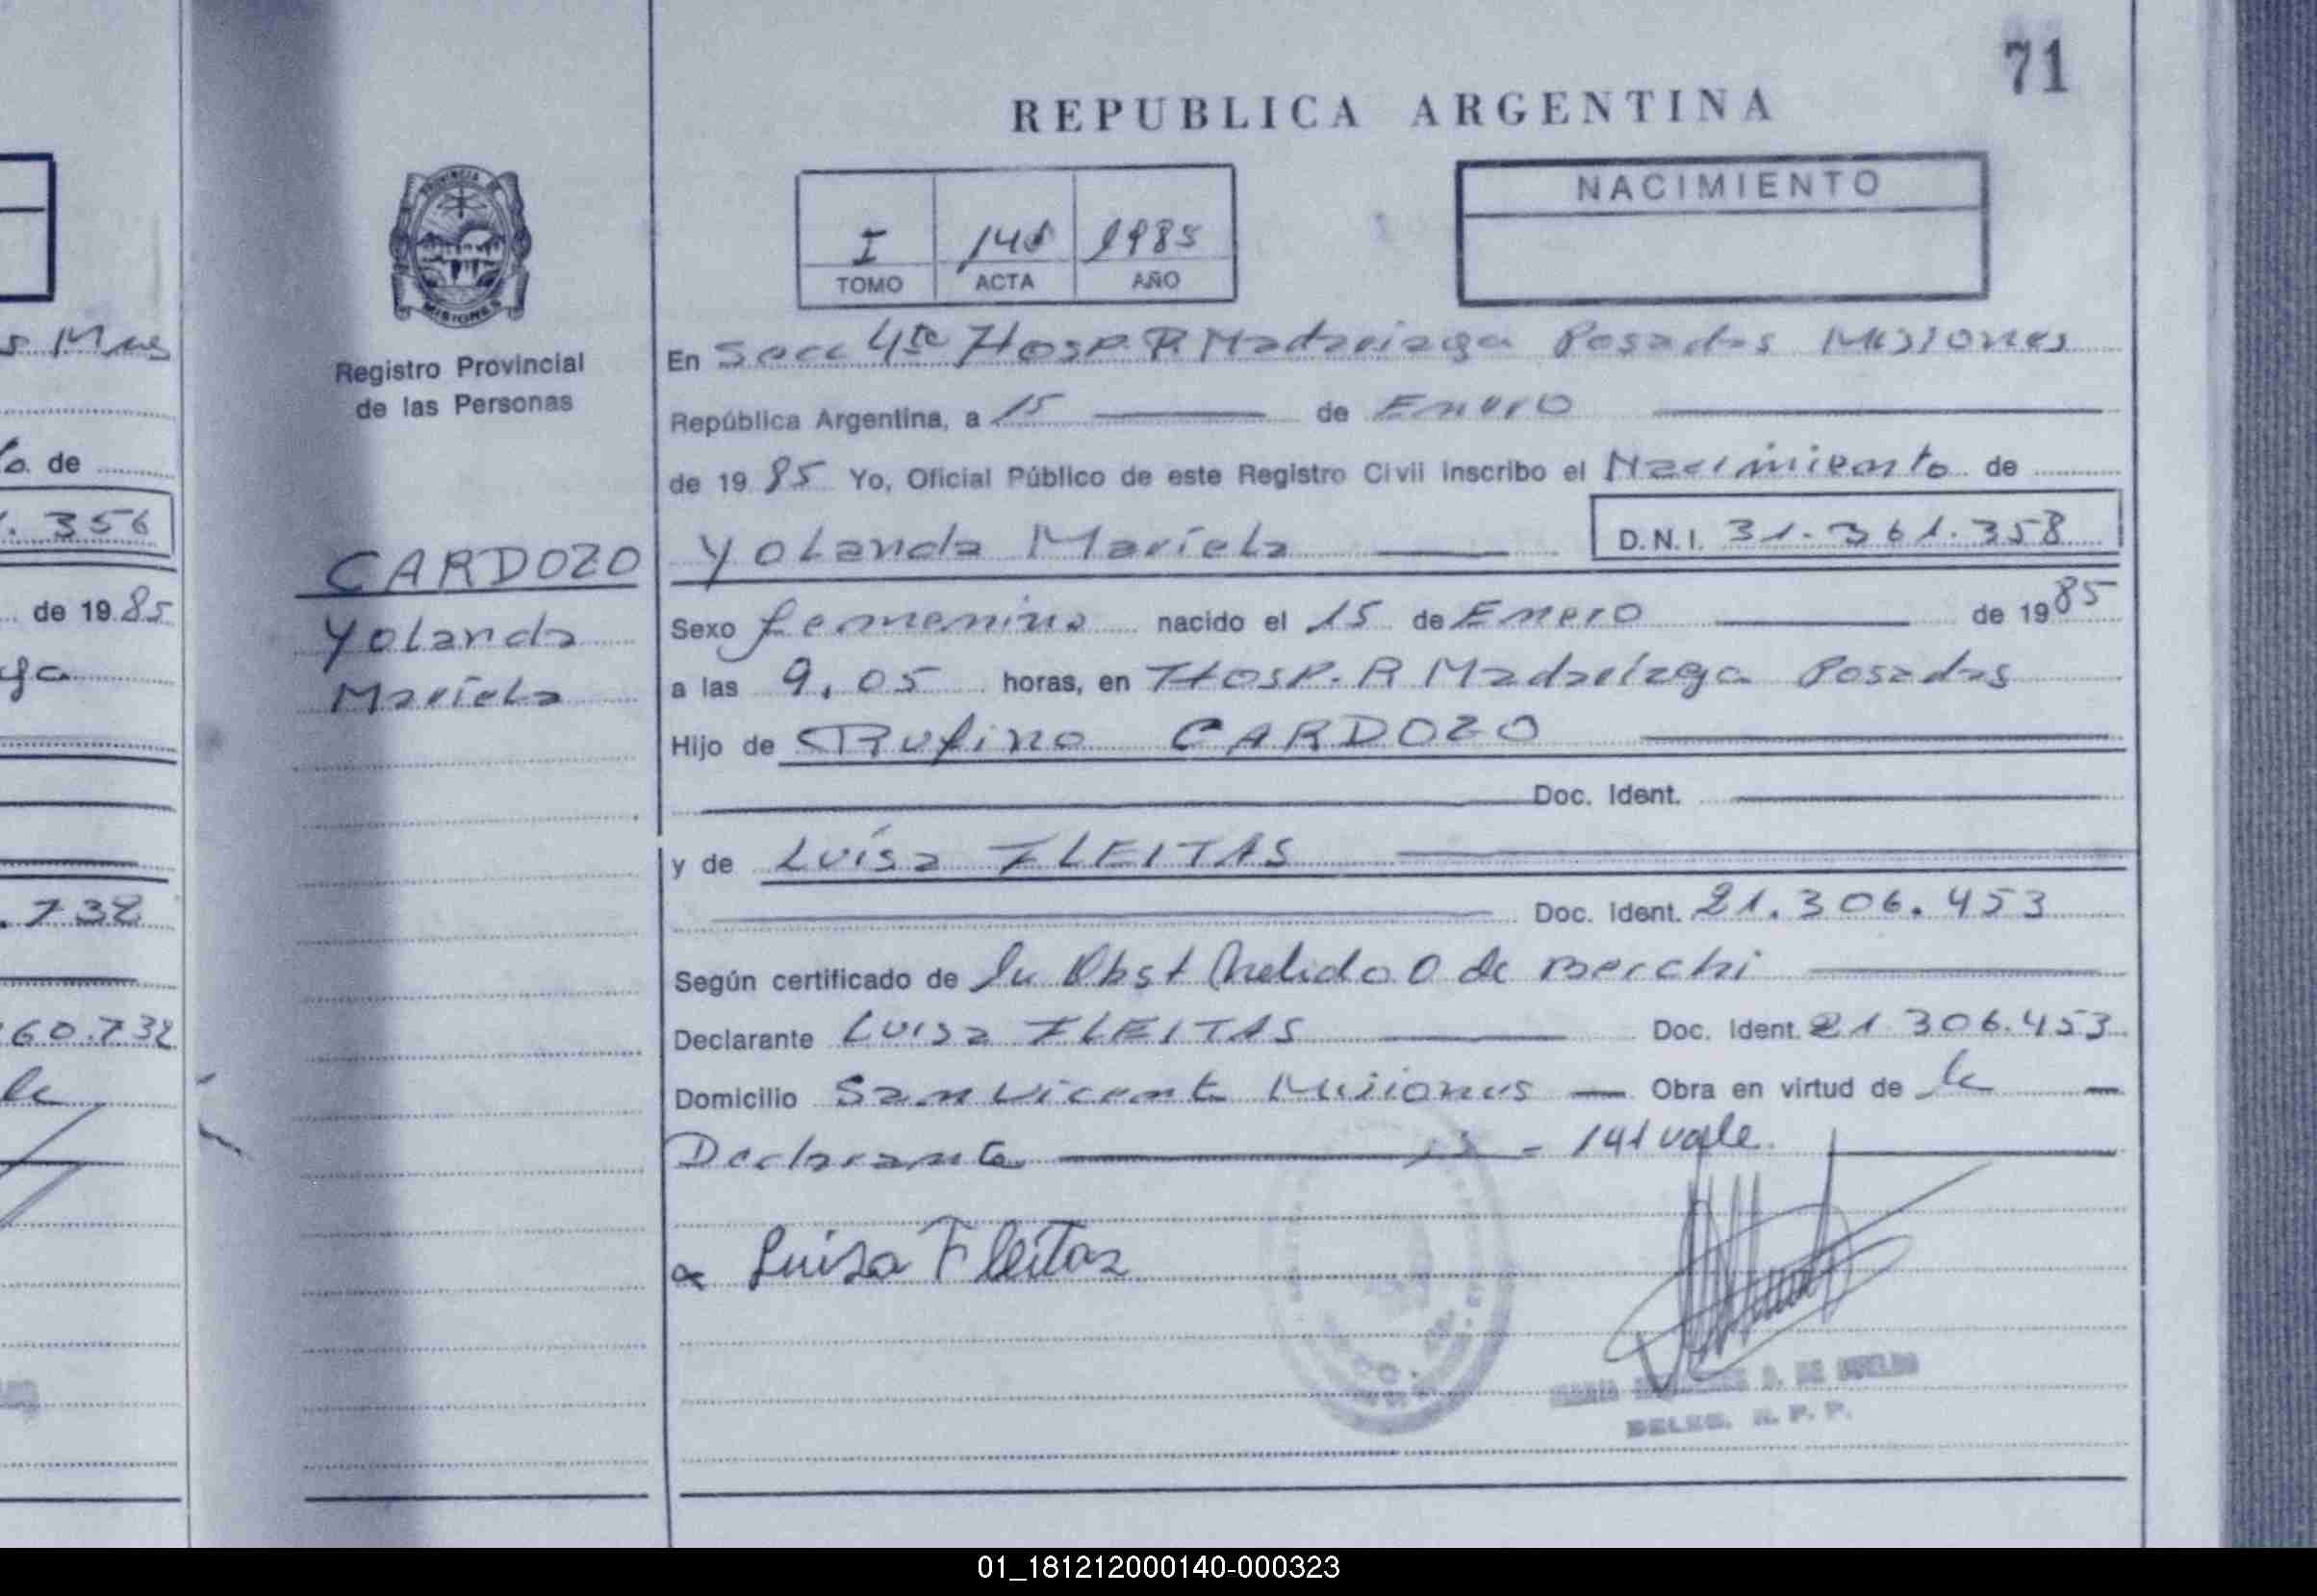 71
REPUBLICA ARGENTINA
PROVINCIA DE
MISIONES
Registro Provincial
de las Personas
I 1985
TOMO ACTA AÑO
NACIMIENTO
s Mnes
En Secc 4ta Hosp. R Madariaga Posadas Misiones
República Argentina, a 15 de Enero
de 1985 Yo, Oficial Público de este Registro Civil inscribo el Nacimiento de
de
356
CARDOZO
Yolanda
Mariela
Yolanda Mariela D.N.I. 31.361.358
de 19 85
Sexo femenino nacido el 15 de Enero de 1985
ga
a las 9,05 horas, en Hosp. R Madariaga Posadas
Hijo de Rufino CARDOZO
Doc. Ident.
y de Luísa FLEITAS
.732
Doc. Ident. 21.306.453
Según certificado de la Obst O de Berchi
60.732
Declarante Luisa FLEITAS Doc. Ident. 21.306.453
la
Domicilio San Vicente Misiones — Obra en virtud de la —
Declarante 141 vale.
Luisa Fleitas
DELEG. R. P. P.
01_181212000140-000323